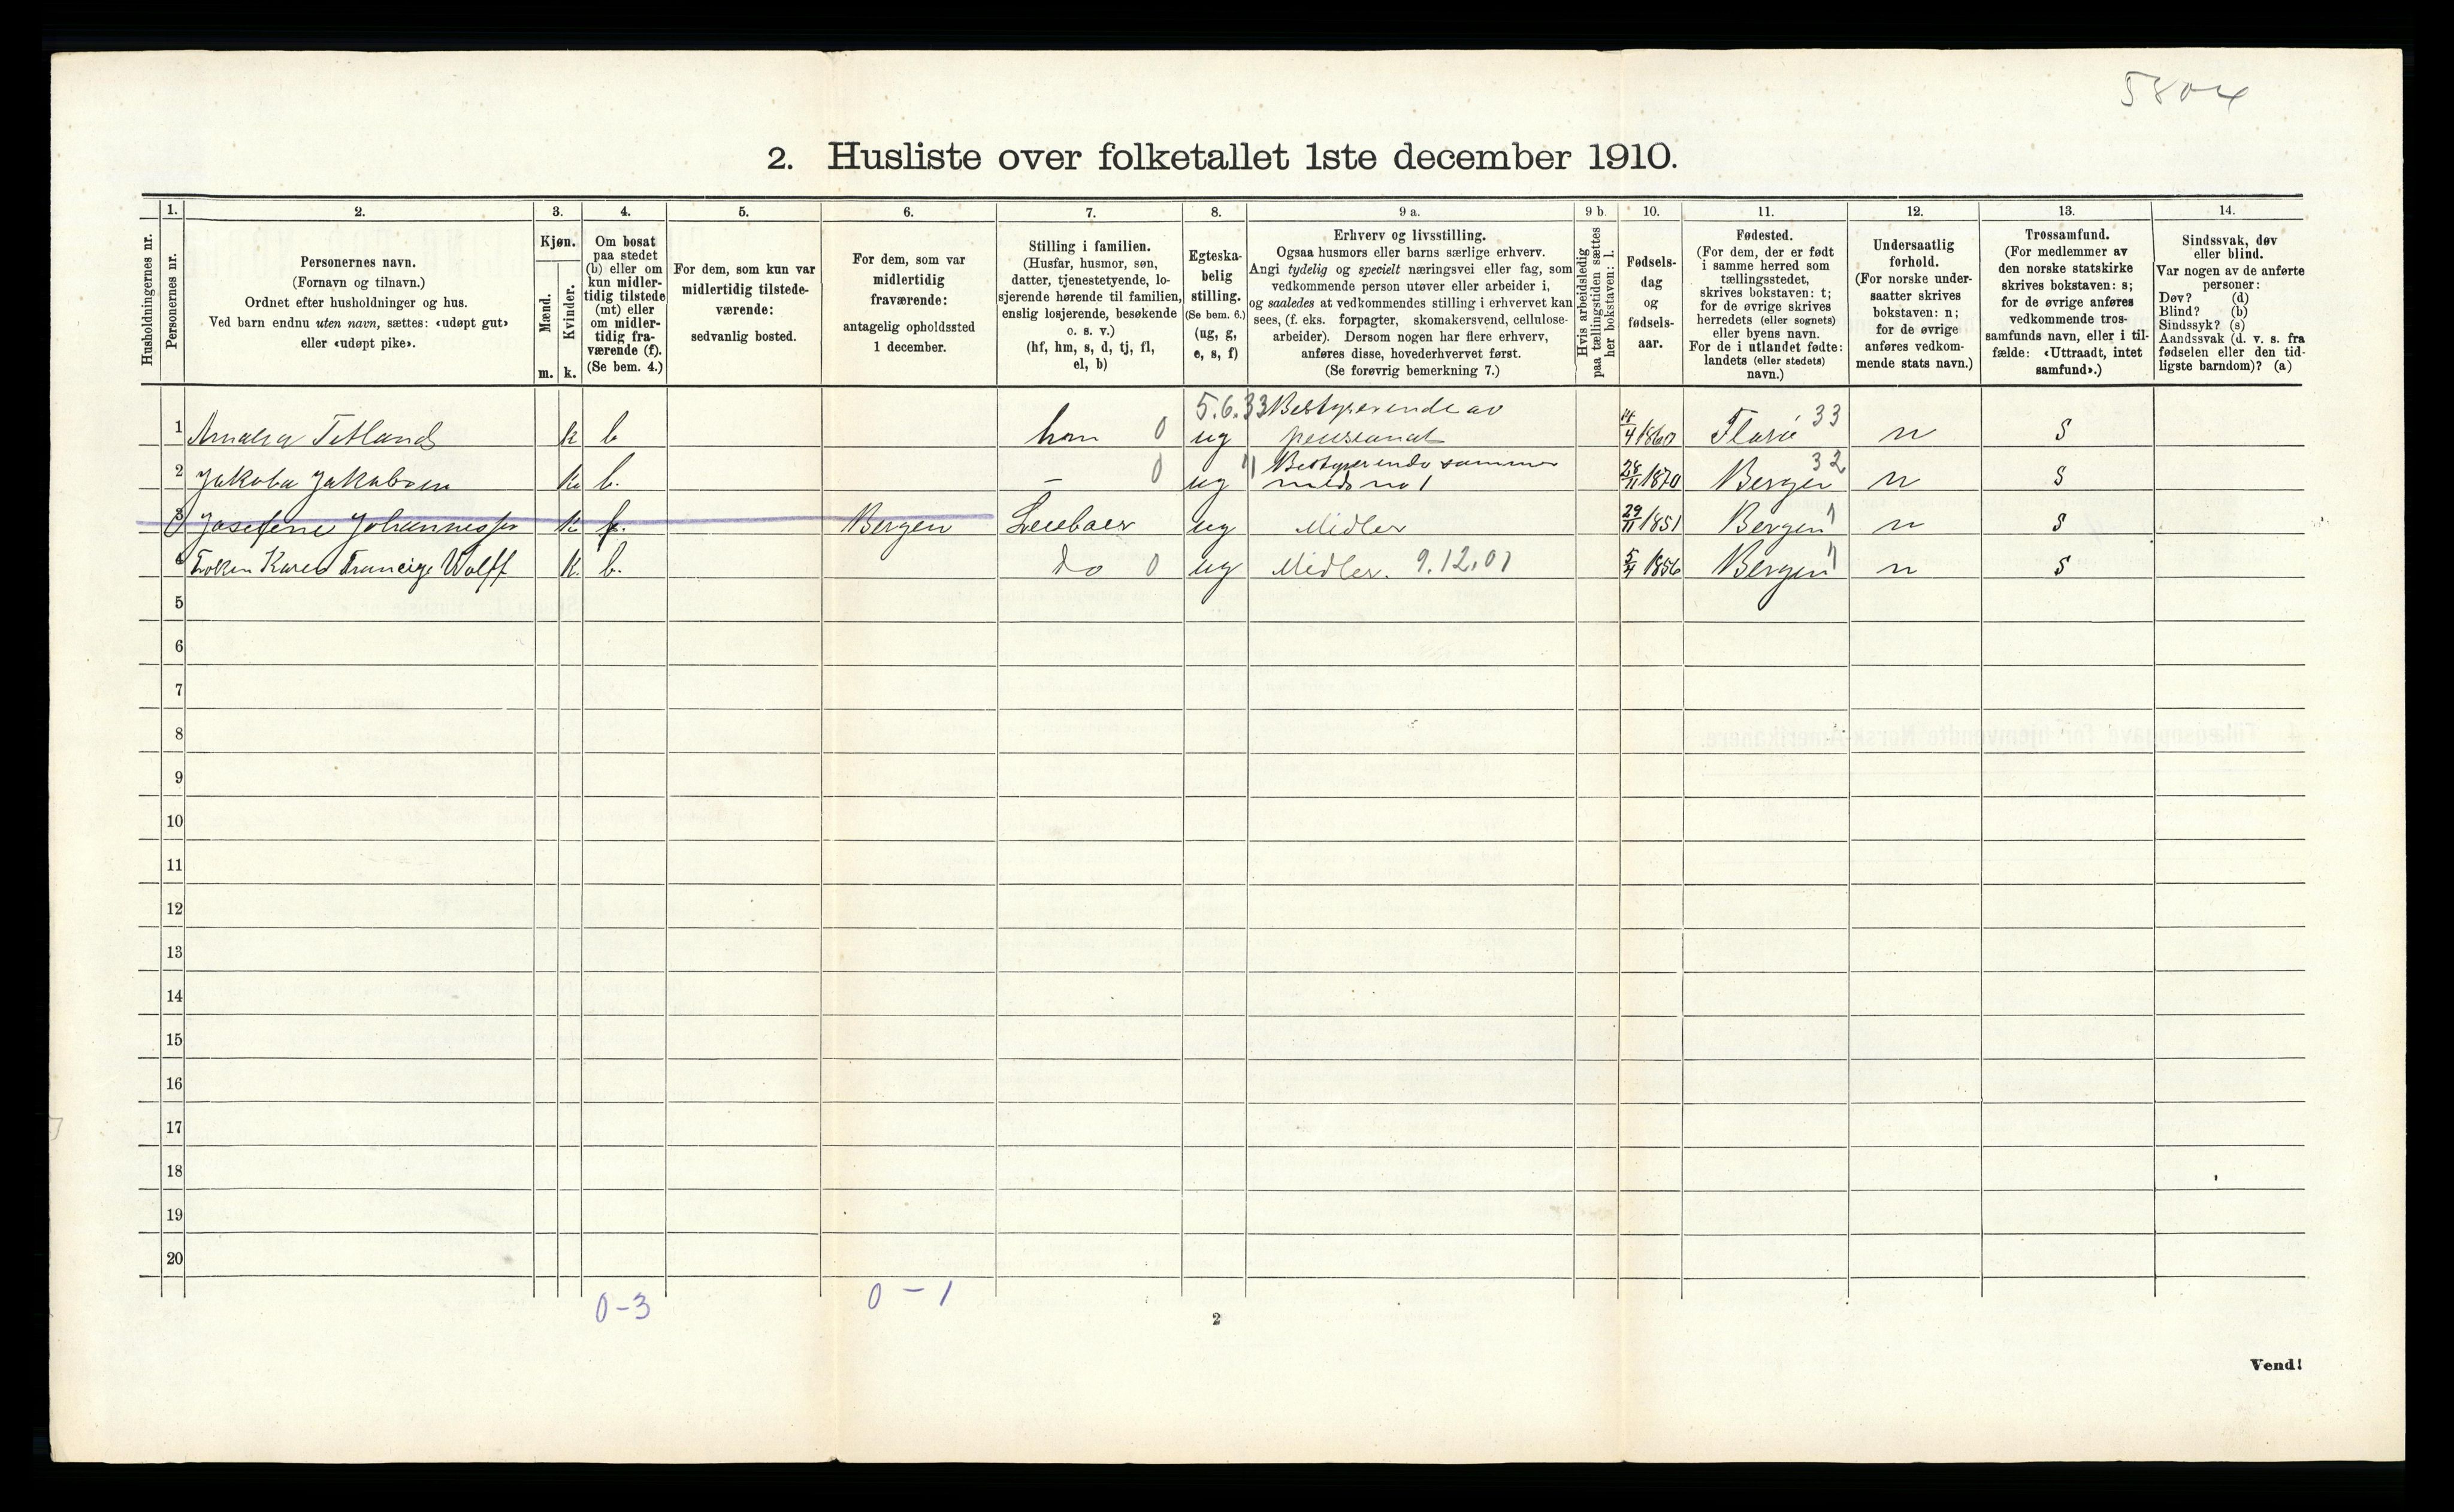 5804
2. Husliste over folketallet 1ste december 1910.
Husholdningernes nr.
1.
Personernes nr.
2.
Personernes navn.
(Fornavn og tilnavn.)
Ordnet efter husholdninger og hus.
Ved barn endnu uten navn, sættes: «udøpt gut»
eller «udøpt pike».
3.
Kjøn.
Mænd.
Kvinder.
m. k.
4.
Om bosat
paa stedet
(b) eller om
kun midler-
tidig tilstede
(mt) eller
om midler-
tidig fra-
værende (f).
(Se bem. 4.)
5.
For dem, som kun var
midlertidig tilstede-
værende:
sedvanlig bosted.
6.
For dem, som var
midlertidig
fraværende:
antagelig opholdssted
1 december.
7.
Stilling i familien.
(Husfar, husmor, søn,
datter, tjenestetyende, lo-
sjerende hørende til familien,
enslig losjerende, besøkende
o. s. v.)
(hf, hm, s, d, tj, fl,
el, b)
8.
Egteska-
belig
stilling.
(Se bem. 6.)
(ug, g,
e, s, f)
9 a.
Erhverv og livsstilling.
Ogsaa husmors eller barns særlige erhverv.
Angi tydelig og specielt næringsvei eller fag, som
vedkommende person utøver eller arbeider i,
og saaledes at vedkommendes stilling i erhvervet kan
sees, (f. eks. forpagter, skomakersvend, cellulose-
arbeider). Dersom nogen har flere erhverv,
anføres disse, hovederhvervet først.
(Se forøvrig bemerkning 7.)
9 b.
Hvis arbeidsledig
paa tællingstiden sættes
her bokstaven: l.
10.
Fødsels-
dag
og
fødsels-
aar.
11.
Fødested.
(For dem, der er født
i samme herred som
tællingsstedet,
skrives bokstaven: t;
for de øvrige skrives
herredets (eller sognets)
eller byens navn.
For de i utlandet fødte:
landets (eller stedets)
navn.)
12.
Undersaatlig
forhold.
(For norske under-
saatter skrives
bokstaven: n;
for de øvrige
anføres vedkom-
mende stats navn.)
13.
Trossamfund.
(For medlemmer av
den norske statskirke
skrives bokstaven: s;
for de øvrige anføres
vedkommende tros-
samfunds navn, eller i til-
fælde: «Uttraadt, intet
samfund».)
14.
Sindssvak, døv
eller blind.
Var nogen av de anførte
personer:
Døv? (d)
Blind? (b)
Sindssyk? (s)
Aandssvak (d. v. s. fra
fødselen eller den tid-
ligste barndom)? (a)
5.6.33 Bestyrerende av
1 Amalia Tetland k b hm 0 ug pensionat 14/4 1860 33 n s
Bestyrerende sammen
2 Jakoba Jakobsen k b. – 0 ug med no 1 28/11 1870 Bergen 32 n s
3 Josefine k f. Bergen ug Midler 29/11 1851 Bergen n s
4 Frøken Karen Wolff k. b. do 0 ug Midler. 9.12.01 5/4 1856 Bergen n s
5
6
7
8
9
10
11
12
13
14
15
16
17
18
19
20
0-3
0 - 1
2
Vend!